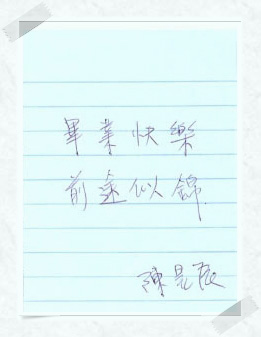 畢業快樂
前途似錦
陳昱辰